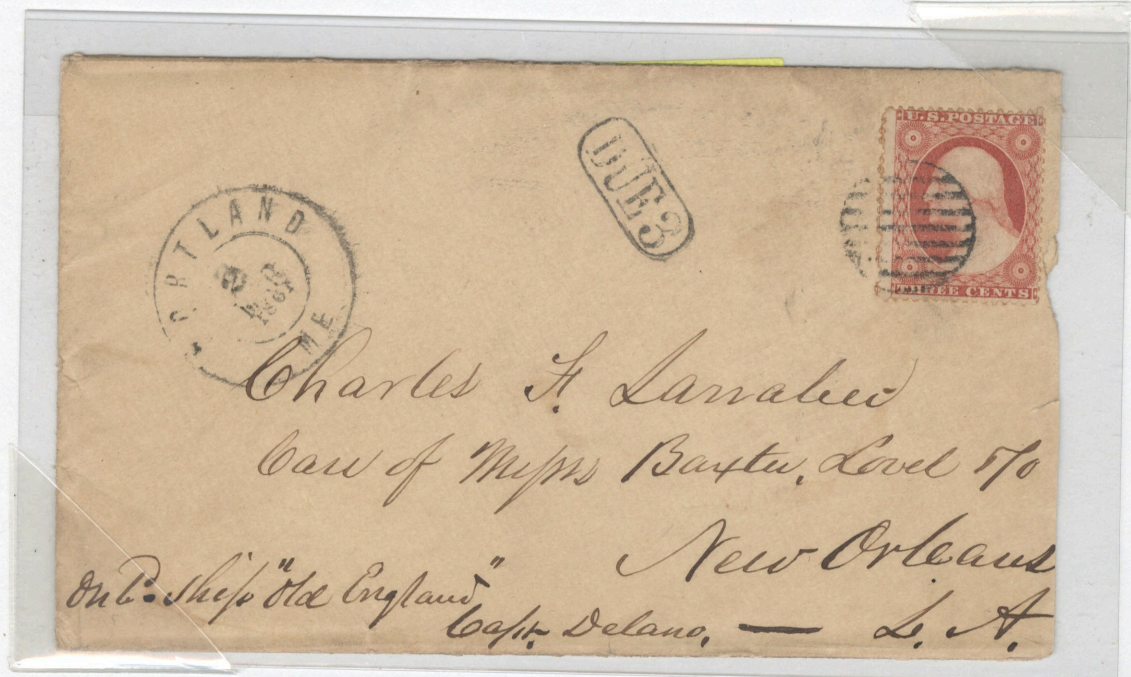 U.S. POSTAGE
THREE CENTS
DUE 3
PORTLAND
1861
ME
Charles F. Larrabee
Care of Messs Baxter, Lovel & Co
New Orleans
On Bd. Ship "Old England"
Capt. Delano. — L. A.